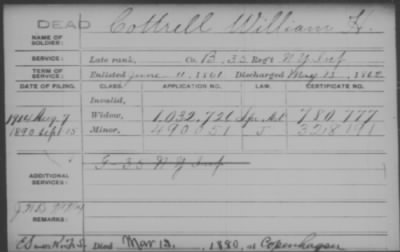 DEAD
NAME OF SOLDIER: Cottrell William H.
SERVICE: Late rank, Co. B. 35 Regt N.Y. Inf
TERM OF SERVICE: Enlisted June 11, 1861. Discharged May 13, 1862
DATE OF FILING. CLASS. APPLICATION NO. LAW. CERTIFICATE NO.
Invalid,
Aug. 7 Widow, 1,032,726 Act 780,777
1890 Sept 15 Minor, 490051 J
ADDITIONAL SERVICES: G-35 N Y Inf
REMARKS:
Died Mar 13, 1880, at Copenhagen